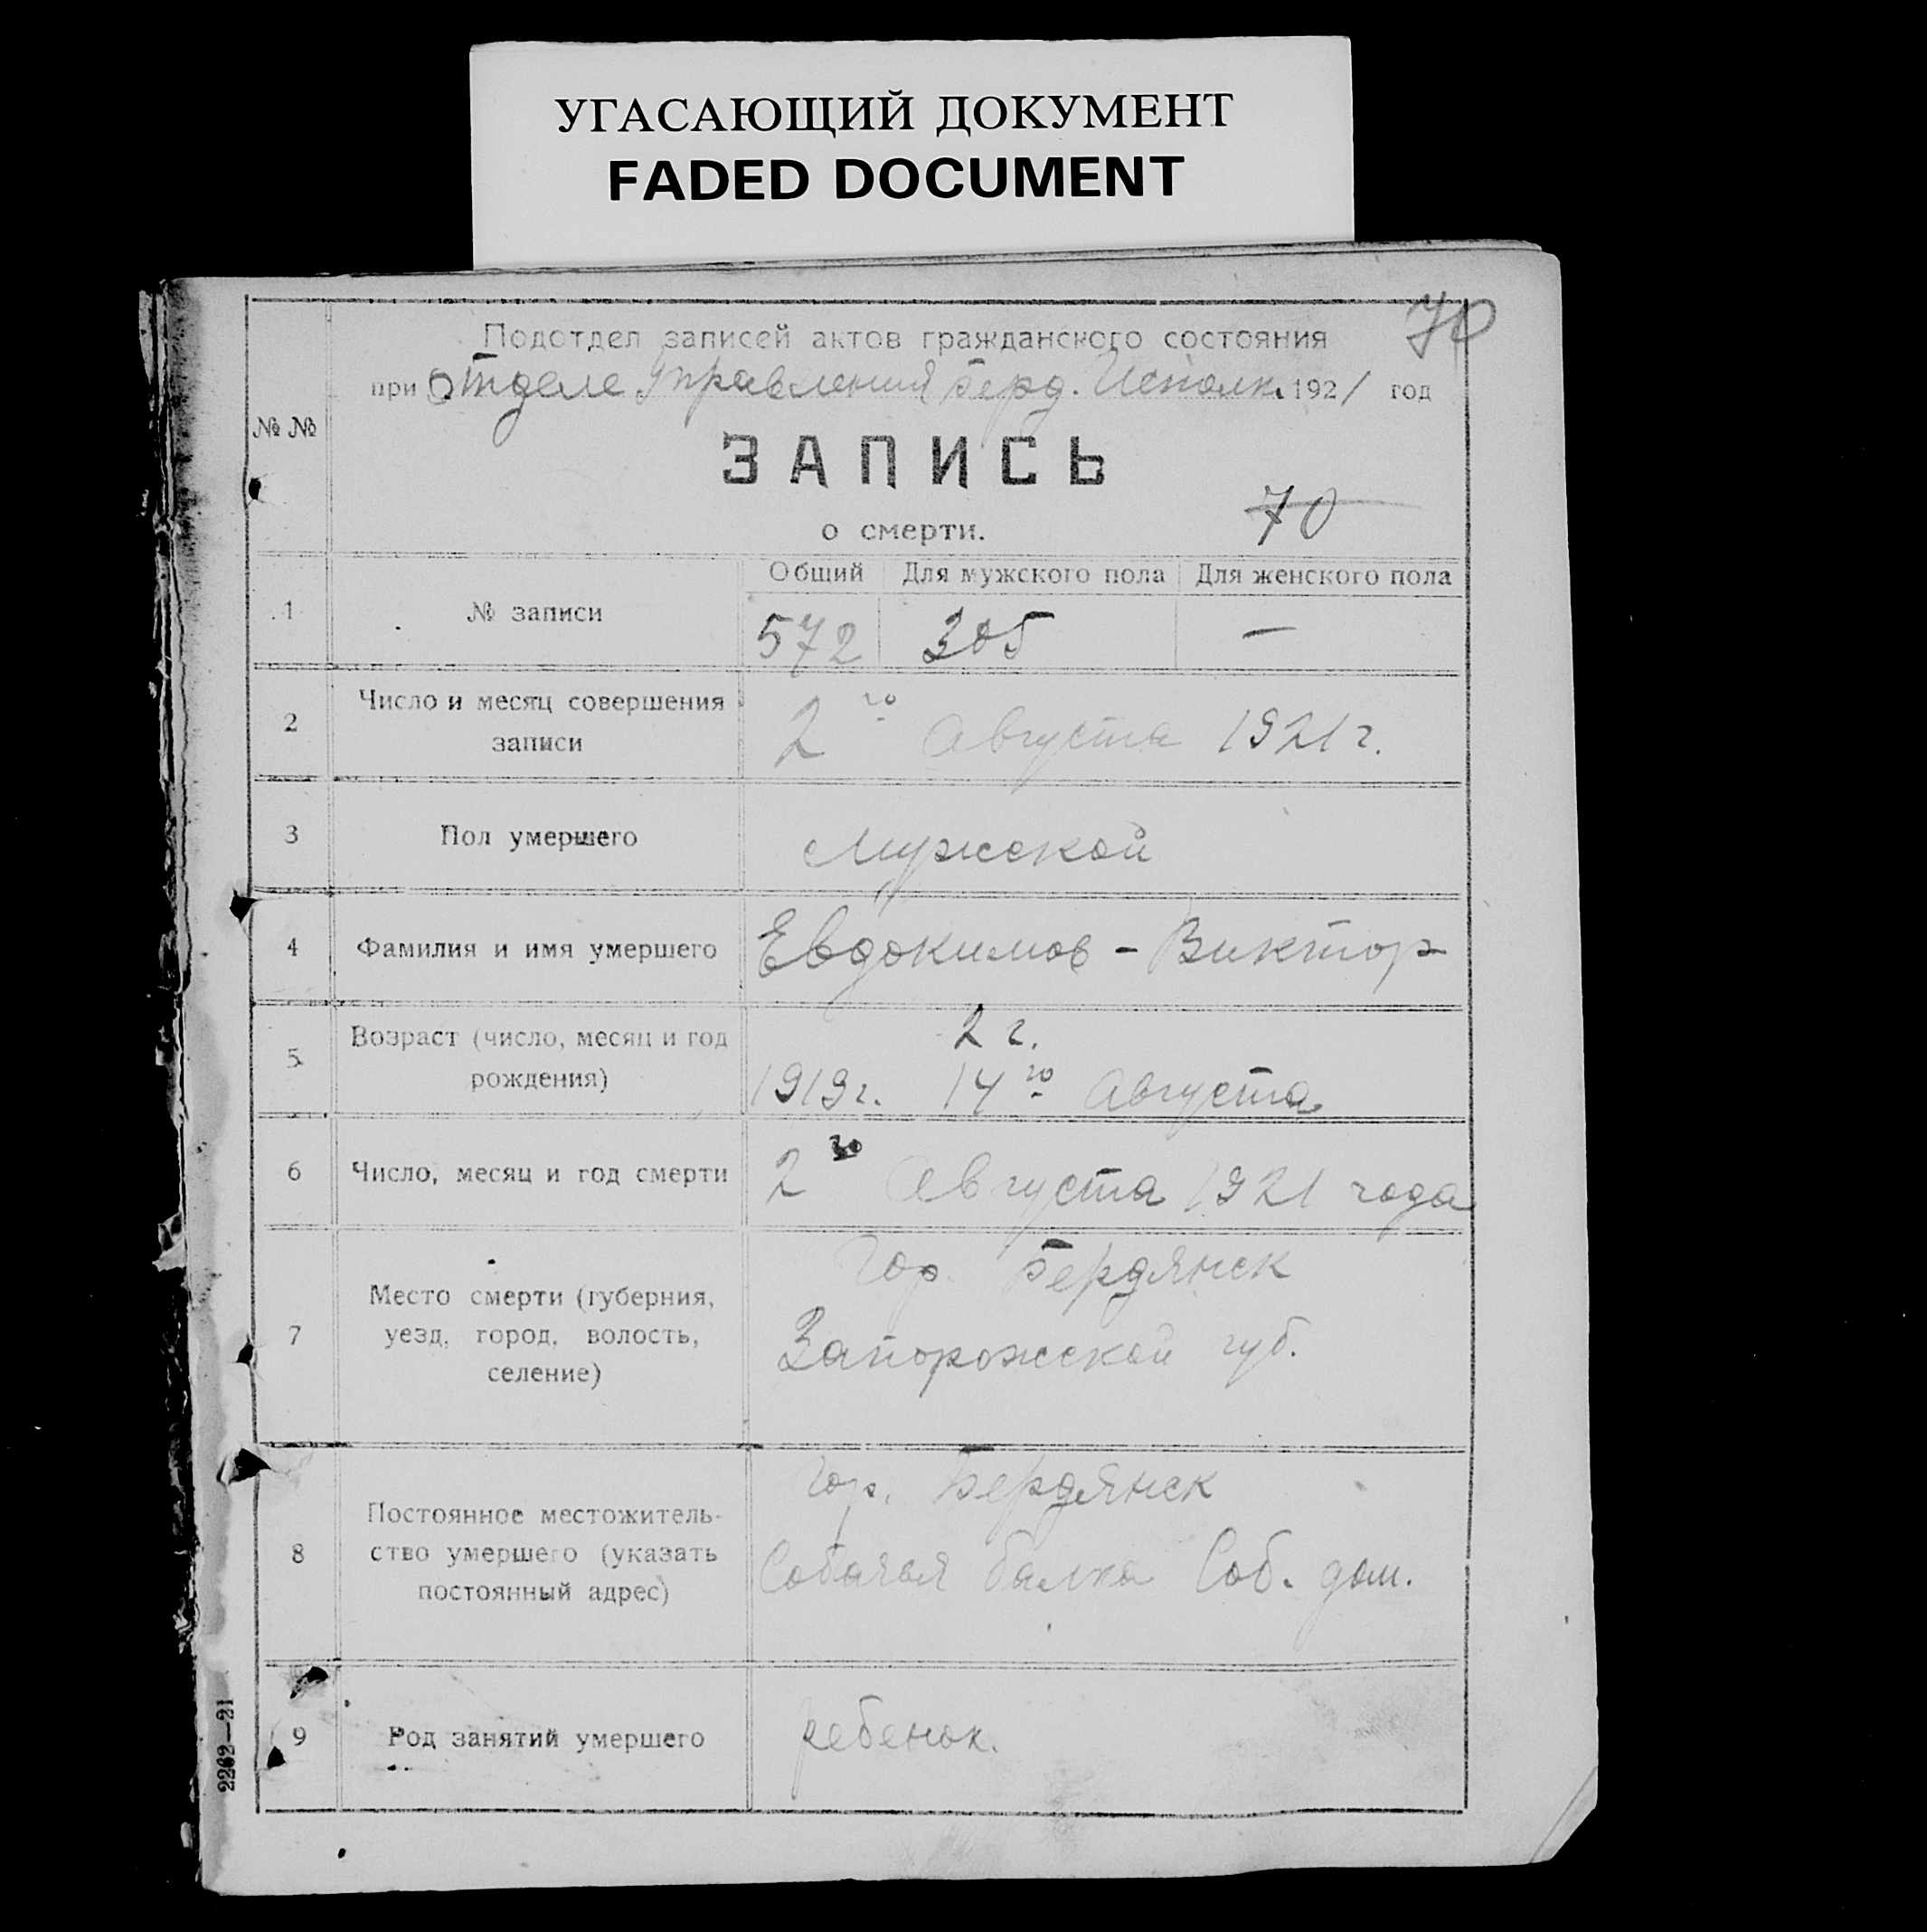 УГАСАЮЩИЙ ДОКУМЕНТ
FADED DOCUMENT
70
Подотдел записей актов гражданского состояния
при Отделе Управления Берд. Исполк. 1921 год
№ №
ЗАПИСЬ
о смерти.
70
Общий Для мужского пола Для женского пола
1 № записи 572 305 —
2 Число и месяц совершения
записи 2го Августа 1921 г.
3 Пол умершего Мужской
4 Фамилия и имя умершего Евдокимов - Виктор
2 г.
5 Возраст (число, месяц и год
рождения) 1919 г. 14го Августа
6 Число, месяц и год смерти 2го Августа 1921 года
Гор. Бердянск
7 Место смерти (губерния,
уезд, город, волость, Запорожской губ.
селение)
Гор. Бердянск
8 Постоянное местожитель-
ство умершего (указать Собачая балка Соб. дом.
постоянный адрес)
9 Род занятий умершего ребенок.
2262—21